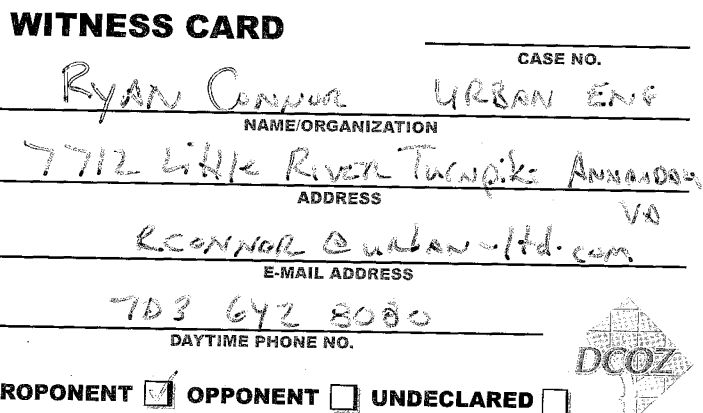 WITNESS CARD
CASE NO.
RYAN CONNOR URBAN ENG
NAME/ORGANIZATION
7712 Little RIVER Turnpike ANNANDALE
ADDRESS
VA
RCONNOR @ urban-ltd.com
E-MAIL ADDRESS
703 642 8080
DAYTIME PHONE NO.
DCOZ
ROPONENT ☑ OPPONENT ☐ UNDECLARED ☐